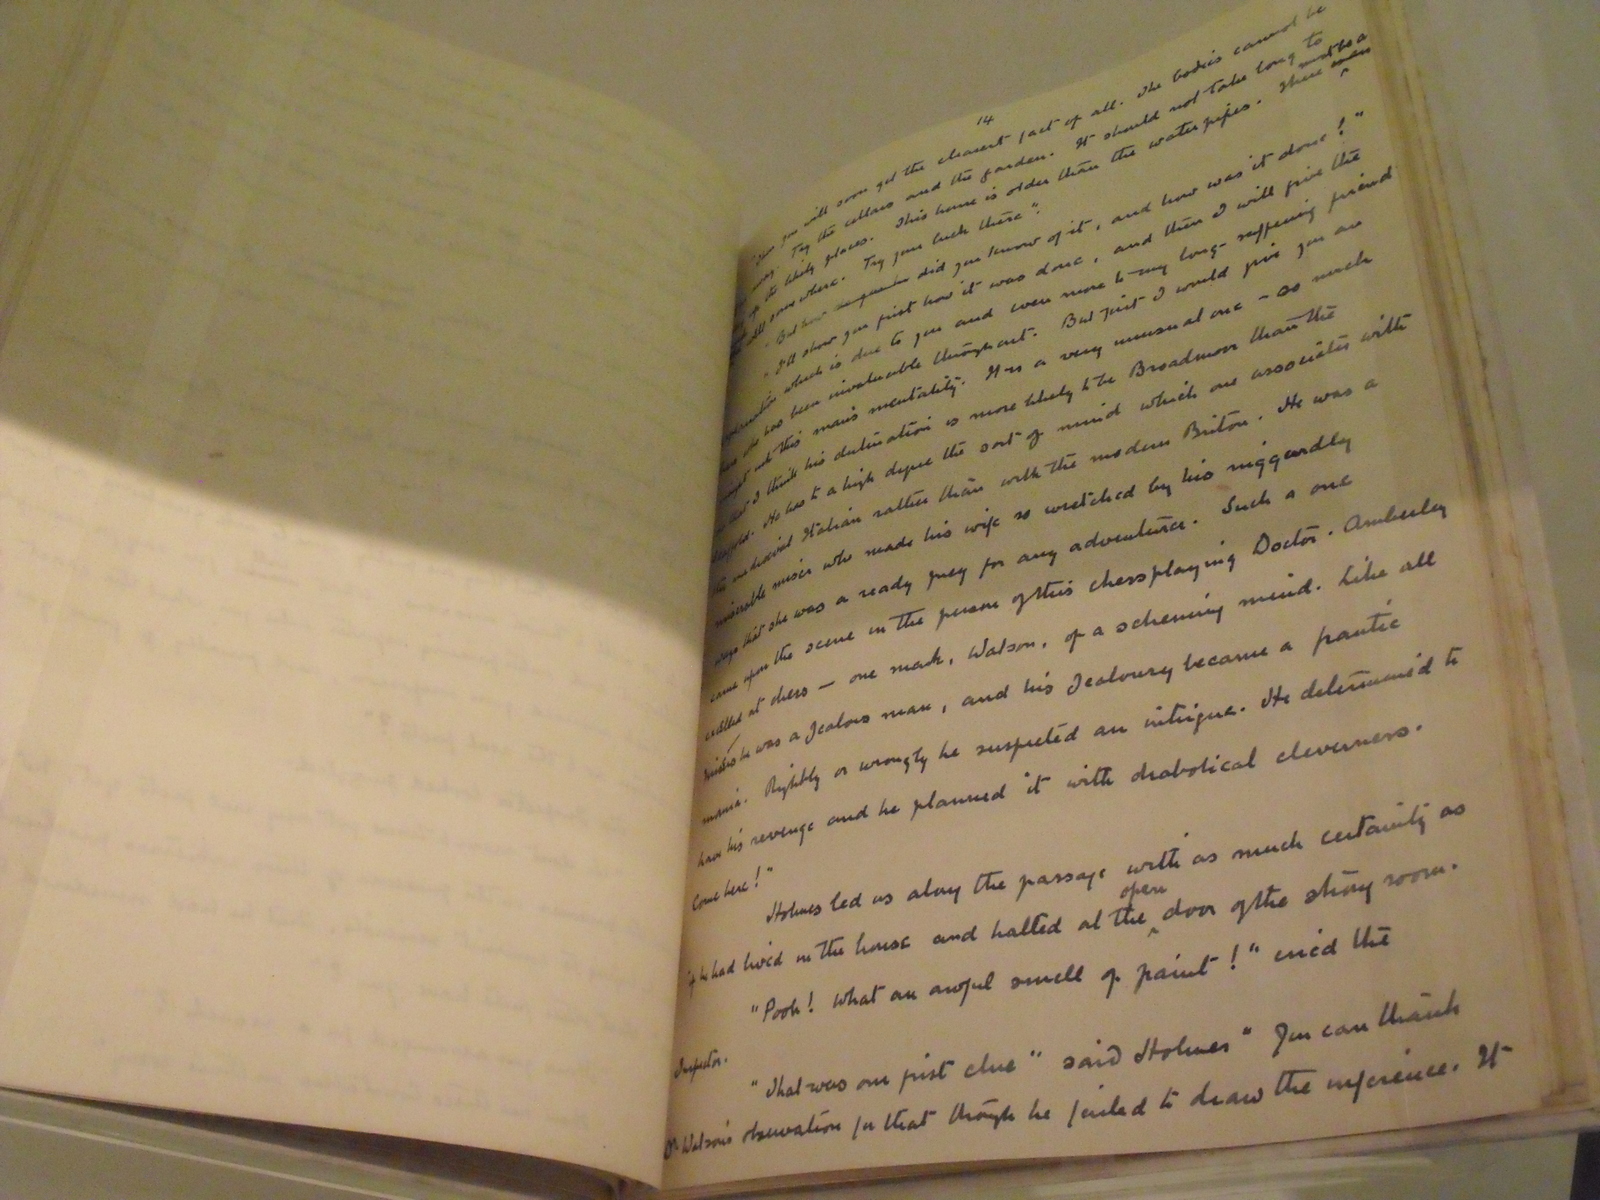 14
you will soon get the clearest fact of all. The bodies cannot be
away. Try the cellars and the garden. It should not take long to
up the likely places. This house is older than the waterpipes. There must be a
well somewhere. Try your luck there".
"But how did you know of it, and how was it done?"
"I'll show you first how it was done, and then I will give the
explanation which is due to you and even more to my long-suffering friend
here who has been invaluable throughout. But first I would give you an
insight into this man's mentality. It is a very unusual one - so much
so that I think his destination is more likely to be Broadmoor than the
scaffold. He has to a high degree the sort of mind which one associates with
the mediaeval Italian rather than with the modern Briton. He was a
miserable miser who made his wife so wretched by his niggardly
ways that she was a ready prey for any adventurer. Such a one
came upon the scene in the person of this chessplaying Doctor. Amberley
excelled at chess — one mark, Watson, of a scheming mind. Like all
misers he was a Jealous man, and his Jealousy became a frantic
mania. Rightly or wrongly he suspected an intrigue. He determined to
have his revenge and he planned it with diabolical cleverness.
Come here!"
Holmes led us along the passage with as much certainity as
if he had lived in the house and halted at the open door of the strong room.
"Pooh! What an awful smell of paint!" cried the
Inspector.
"That was our first clue" said Holmes "You can thank
Dr Watson's observation for that though he failed to draw the inference. It